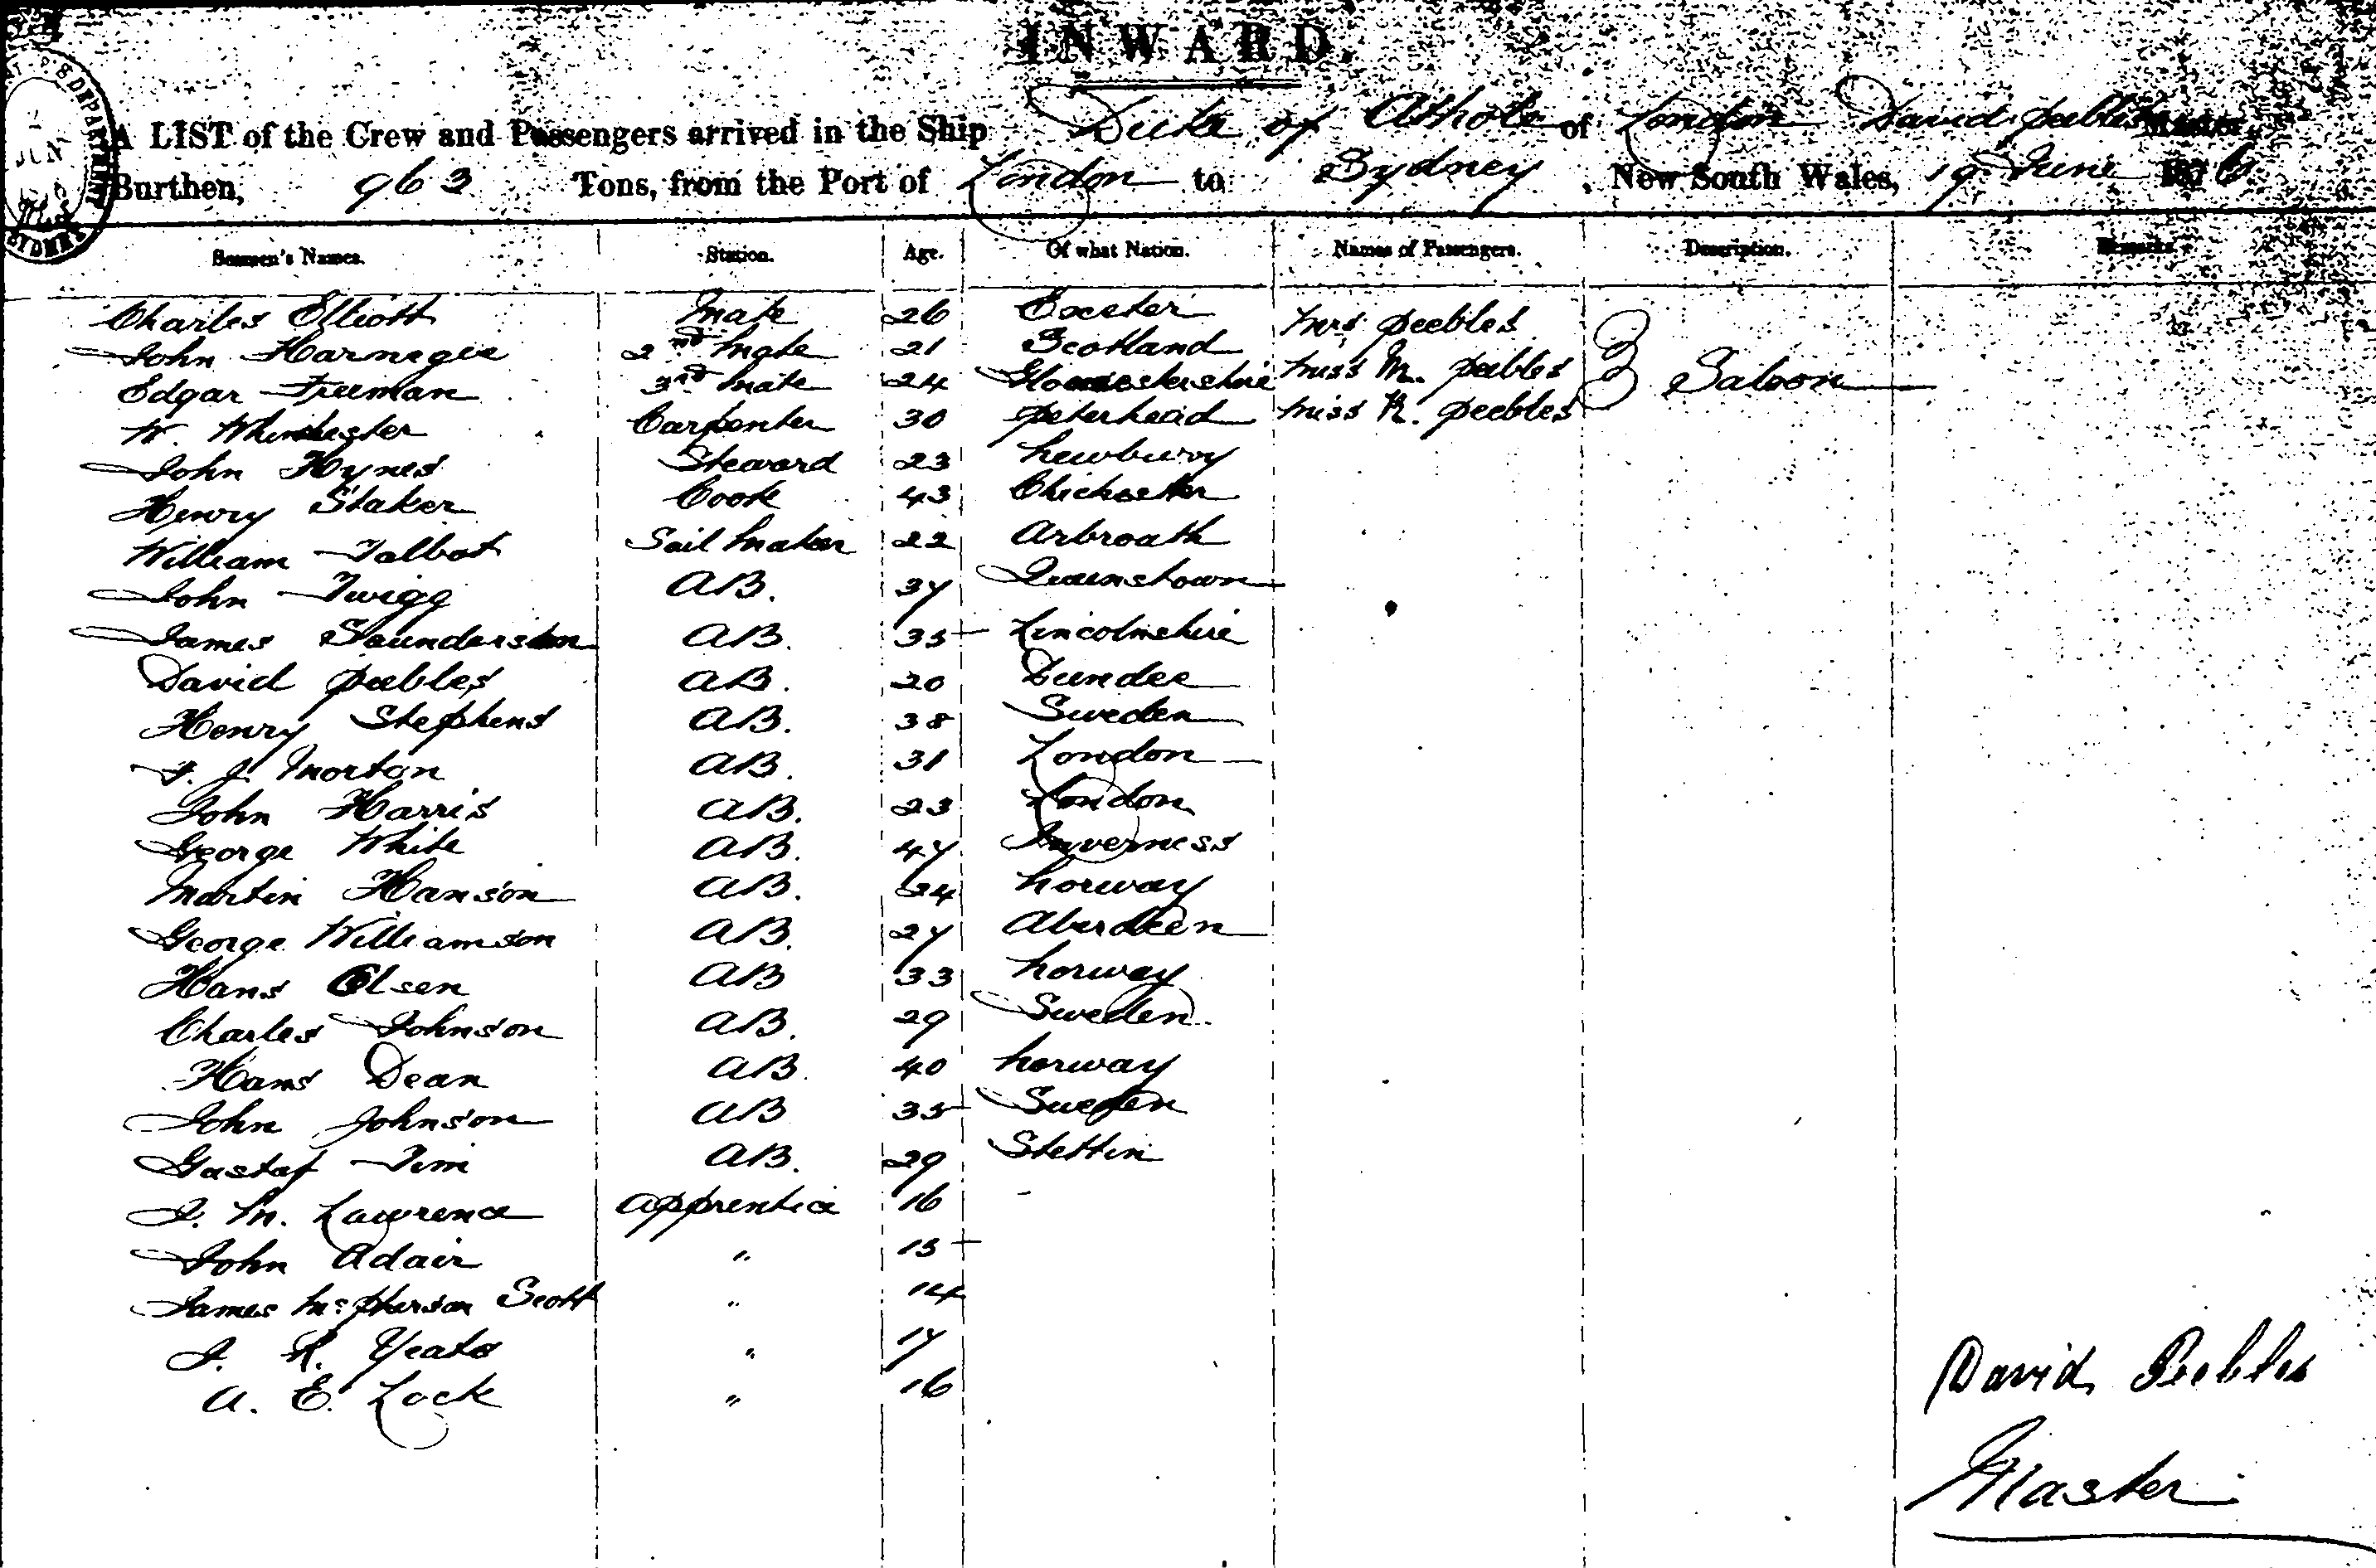 INWARD.
A LIST of the Crew and Passengers arrived in the Ship Duke of Athole of London David Peebles Master,
Burthen, 963 Tons, from the Port of London to Sydney, New South Wales, 19 June 1876
Seamen's Names. Station. Age. Of what Nation. Names of Passengers. Description. Remarks.
Charles Elliott Mate 26 Exeter Mrs Peebles
John Harnegie 2nd Mate 21 Scotland Miss M. Peebles
Edgar Freeman 3rd Mate 24 Gloucestershire Saloon
W. Whinchester Carpenter 30 Peterhead Miss R. Peebles
John Hynes Steward 23 Newbury
Henry Staker Cook 43 Chichester
William Talbot Sail Maker 22 Arbroath
John Twigg AB. 37 Queenstown
James Saunderson AB. 35 Lincolnshire
David Peebles AB. 20 Dundee
Henry Stephens AB. 38 Sweden
J. Morton AB. 31 London
John Harris AB. 23 London
George White AB. 47 Inverness
Martin Hanson AB. 24 Norway
George Williamson AB. 27 Aberdeen
Hans Olsen AB 33 Norway
Charles Johnson AB. 29 Sweden
Hans Dean AB. 40 Norway
John Johnson AB 35 Sweden
Gustaf Tim AB. 29 Stettin
J. M. Lawrence Apprentice 16
John Adair " 15
James McPherson Scott " 14
J. R. Yeats " 17
A. E. Lock " 16
David Peebles
Master